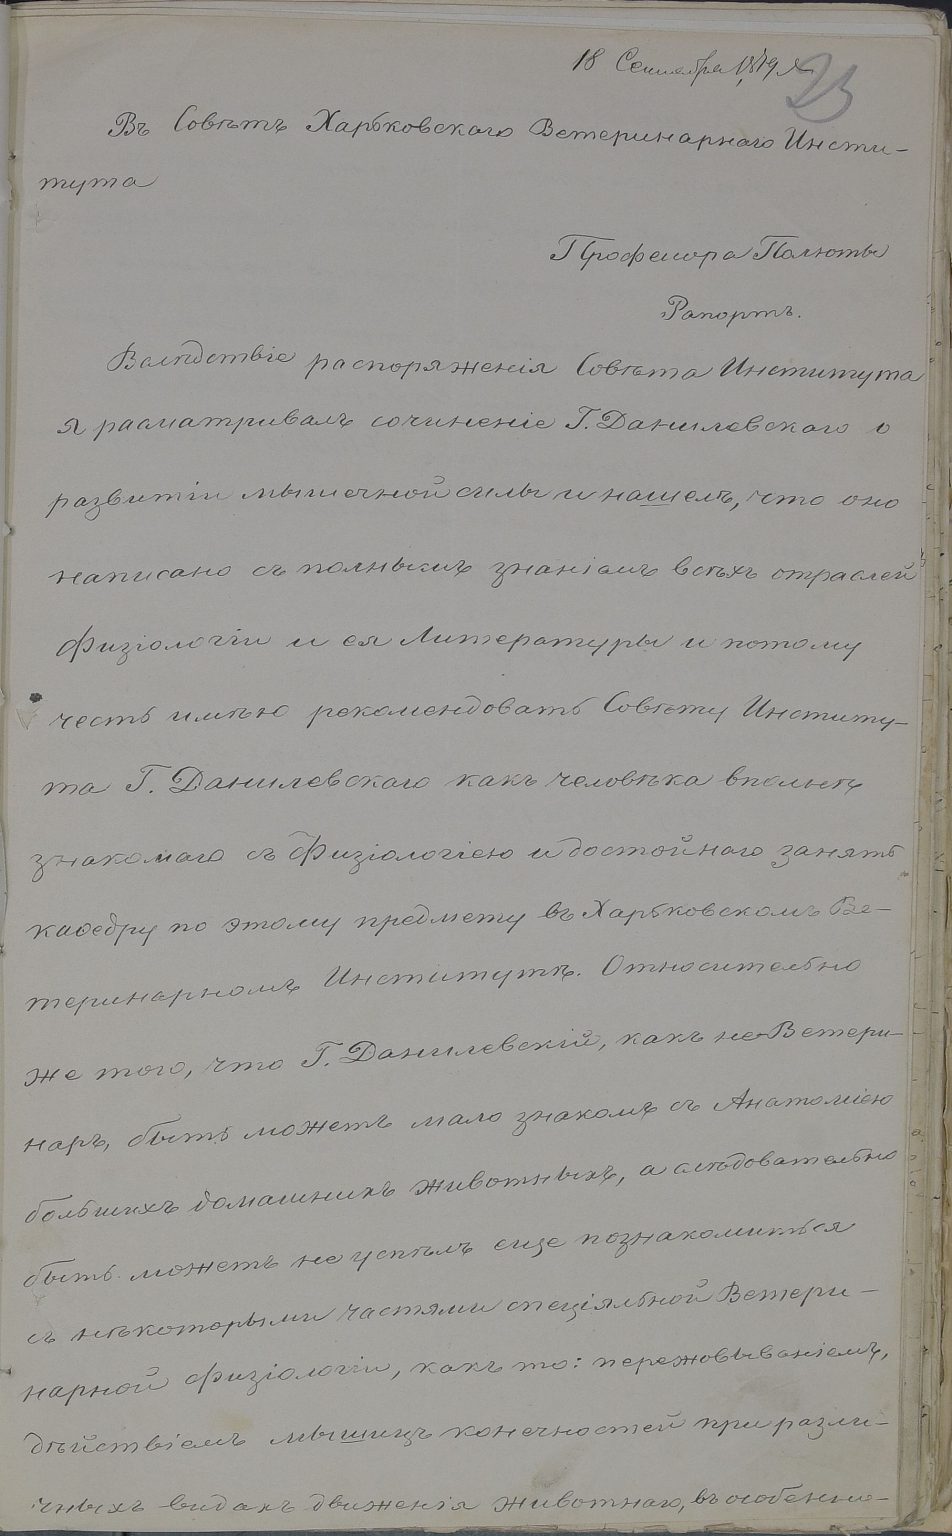 18 Сентября 1879 г.
23
Въ Совѣтъ Харьковскаго Ветеринарнаго Инсти-
тута
Професора Полюты
Рапортъ.
Вслѣдствіе распоряженія Совѣта Института
я расматривалъ сочиненіе Г. Данилевскаго о
развитіи мышечной силы и нашелъ, что оно
написано съ полнымъ знаніемъ всѣхъ отраслей
Физіологіи и ея Литературы и потому
честь имѣю рекомендовать Совѣту Институ-
та Г. Данилевскаго какъ человѣка вполнѣ
знакомаго съ Физіологіею и достойнаго занять
каѳедру по этому предмету въ Харьковскомъ Ве-
теринарномъ Институтѣ. Относительно
же того, что Г. Данилевскій, какъ не Ветери-
наръ, быть можетъ мало знакомъ съ Анатоміею
большихъ домашнихъ животныхъ, а слѣдовательно
быть можетъ не успѣлъ еще познакомиться
съ нѣкоторыми частями спеціяльной Ветери-
нарной Физіологіи, какъ то: пережовываніемъ,
дѣйствіемъ мышицъ конечностей при разли-
чныхъ видахъ движенія животнаго, въ особенно-